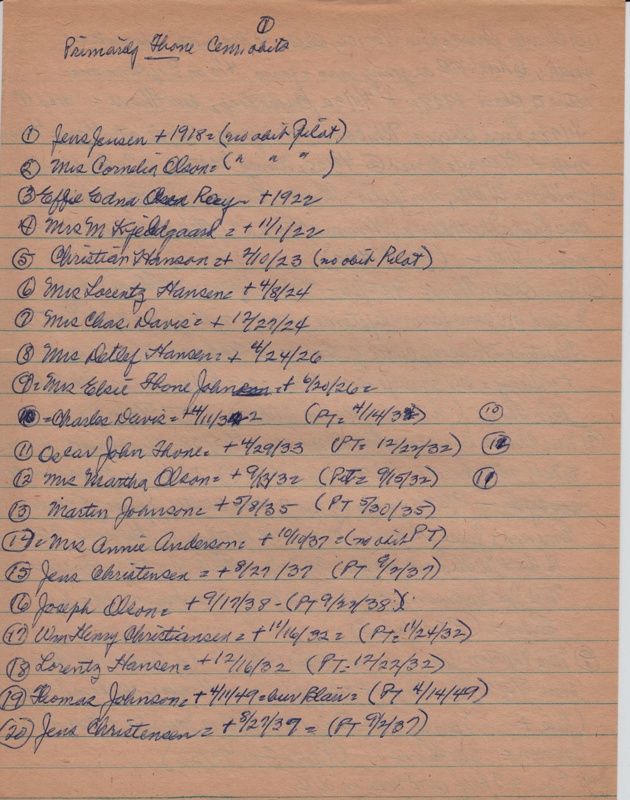 ①
Primarily Thone Cem obits
① Jens Jensen + 1918 = (no obit Pilot)
② Mrs Cornelia Olson = ( " " " )
③ Effie Edna Rey + 1922
④ Mrs M Kjeldgaard = + 11/1/22
⑤ Christian Hanson = + 2/10/23 (no obit Pilot)
⑥ Mrs Lorentz Hansen = + 4/8/24
⑦ Mrs Chas. Davis = + 12/27/24
⑧ Mrs Detlef Hansen = + 4/24/26
⑨ = Mrs Elsie Thone + 6/20/26 =
⑩ = Charles Davis = + 4/11/32 (PT = 4/14/32) ⑩
⑪ Oscar John Thone = + 4/29/33 (PT = 12/22/32) ⑫
⑫ Mrs Martha Olson = + 9/13/32 (PT = 9/15/32) ⑪
⑬ Martin Johnson = + 5/8/35 (PT 5/30/35)
⑭ = Mrs Annie Anderson = + 10/10/37 = (no obit PT)
⑮ Jens Christensen = + 8/27/37 (PT 9/2/37)
⑯ Joseph Olson = + 9/17/38 - (PT 9/22/38) =
⑰ Wm Henry Christiansen = + 11/16/32 = (PT = 11/24/32)
⑱ Lorentz Hansen = + 12/16/32 (PT = 12/22/32)
⑲ Thomas Johnson = + 4/11/49 = bur Blair = (PT 4/14/49)
⑳ Jens Christensen = + 8/27/37 = (PT 9/2/37)